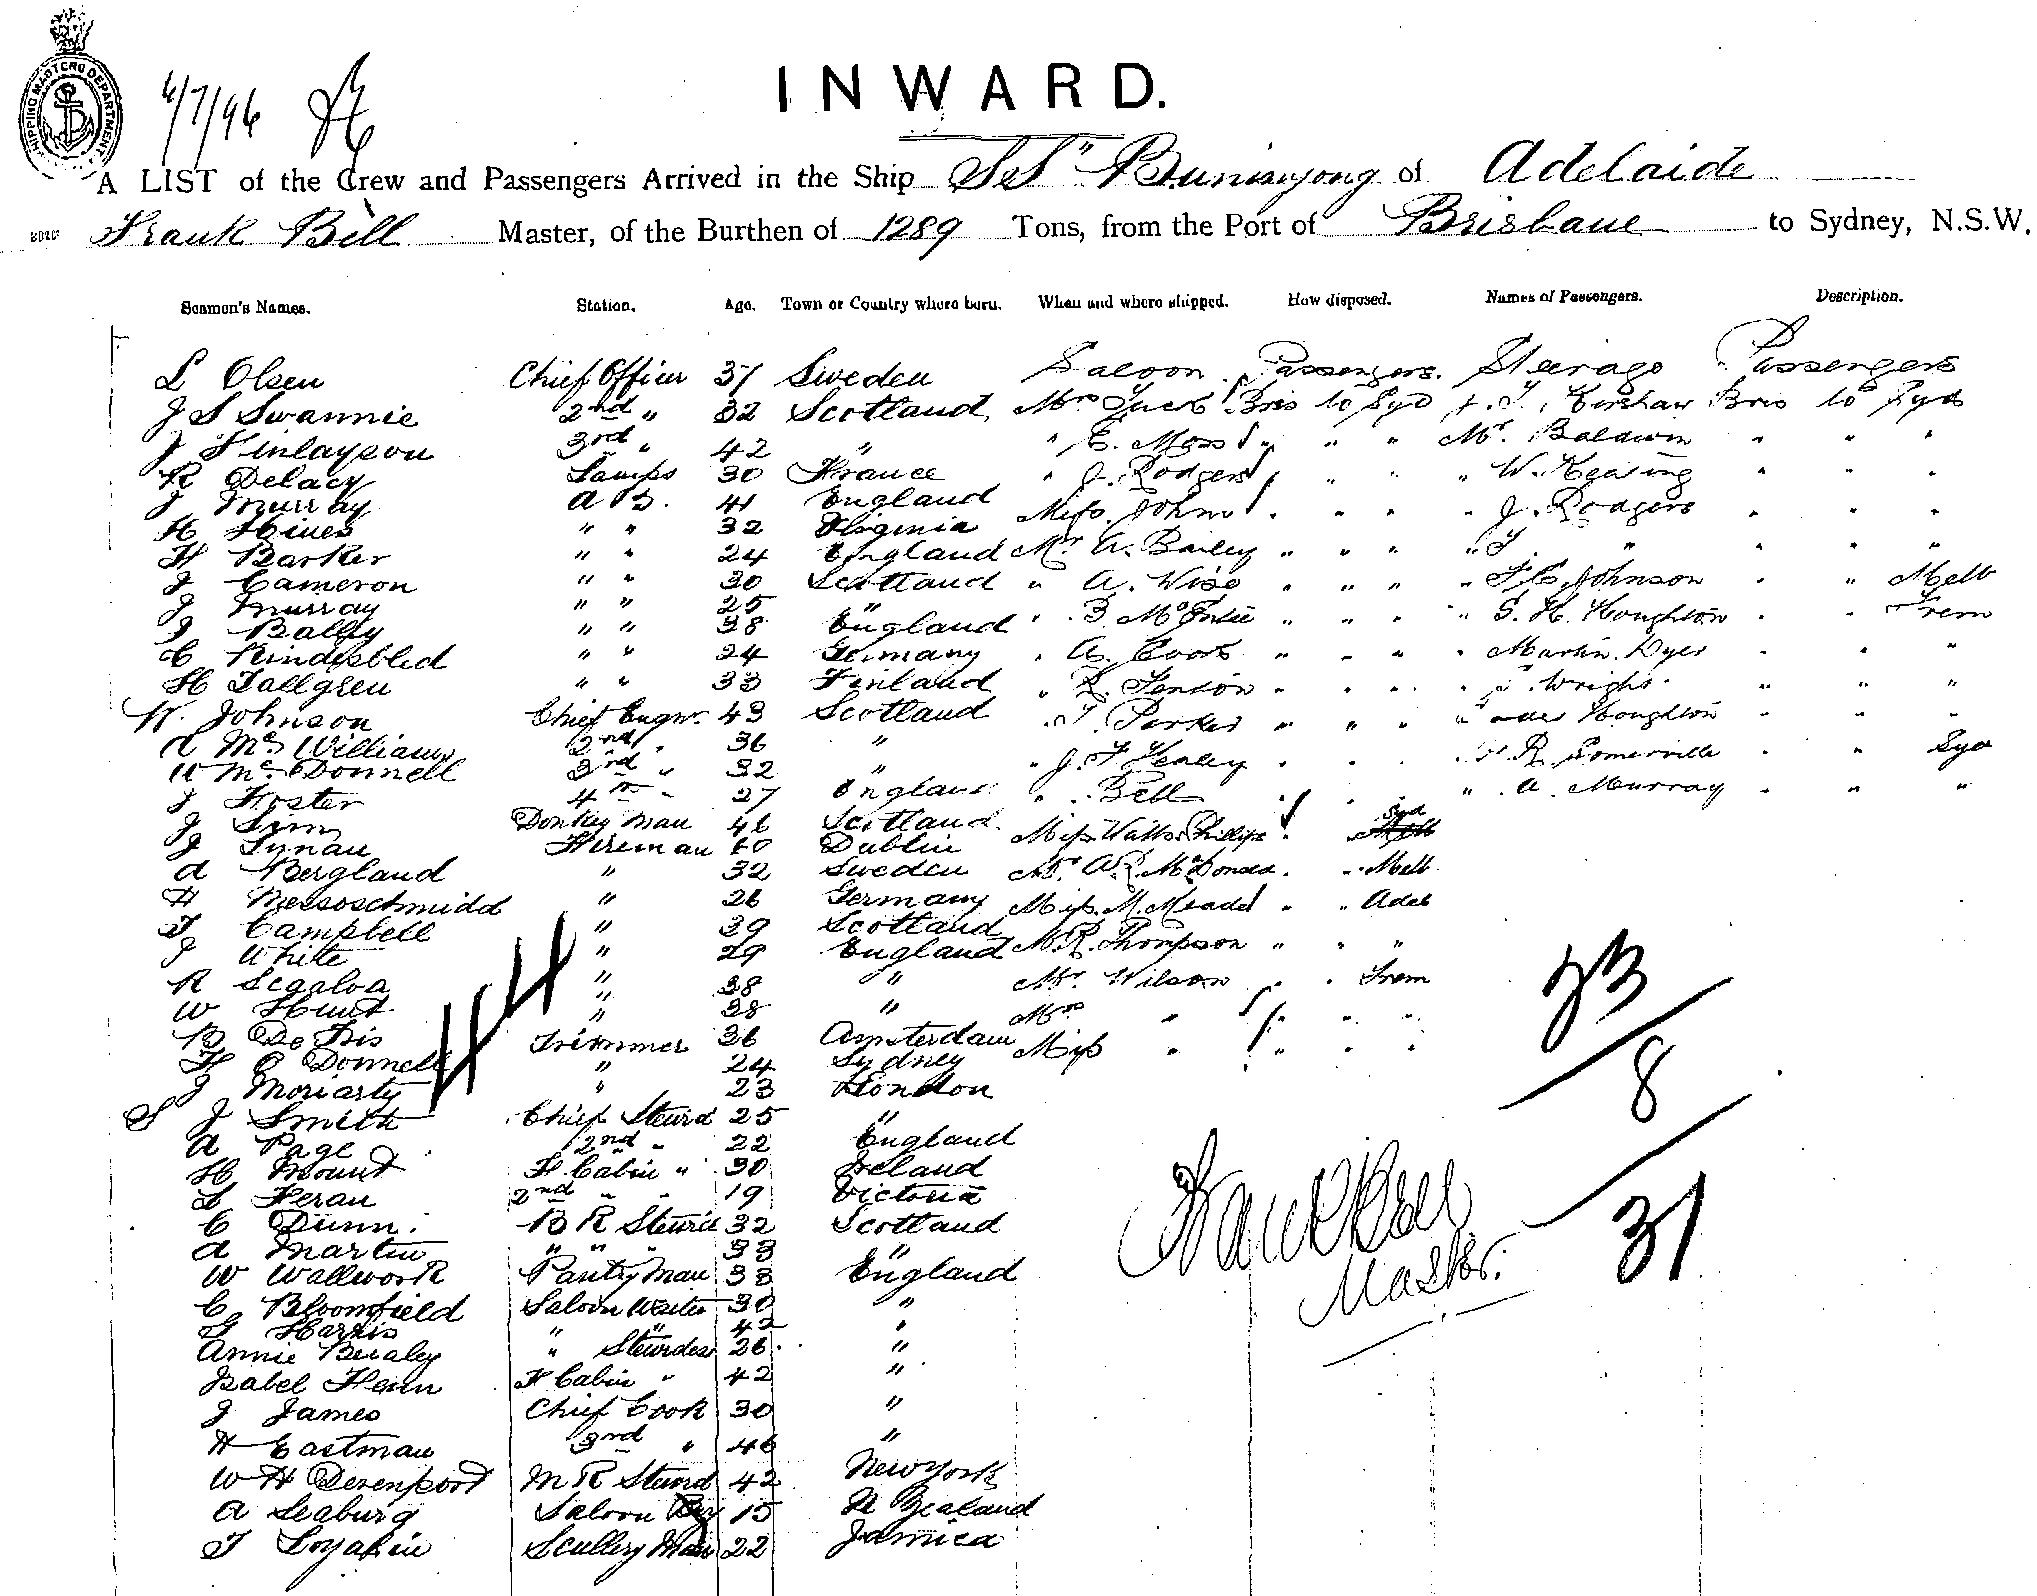 SHIPPING MASTERS DEPARTMENT
6/7/96
INWARD.
A LIST of the Crew and Passengers Arrived in the Ship S.S" Buninyong of Adelaide
Frank Bell Master, of the Burthen of 1289 Tons, from the Port of Brisbane to Sydney, N.S.W.
Seamen's Names. Station. Age. Town or Country where born. When and where shipped. How disposed. Names of Passengers. Description.
L Olsen Chief Officer 37 Sweden Saloon Passengers. Steerage Passengers
J S Swannie 2nd " 32 Scotland Mrs Bris to Syd Kershaw Bris to Syd
J Finlayson 3rd " 42 " " E. Moss " " " Mr. Baldwin " " "
R Delacy Lamps 30 France " J. Rodgers " " " " W. Keating " " "
J Murray A B. 41 England Miss Johns " " " " J. Rodgers " " "
H Hines " " 32 Virginia Mr A. Bailey " " " " J " " " "
H Barker " " 24 England " A. Wise " " " " Johnson " " Melb
J Cameron " " 30 Scotland " " " " " G. H. Houghton " " Frem
J Murray " " 25 " " A. " " " " Martin Dyer " " "
J Balffy " " 38 England " " " " " Wright " " "
C " " 24 Germany " Parker " " " " Houghton " " "
H Tallgren " " 33 Finland " J. F " " " " R Somerville " " Syd
W. Johnson Chief Engnr. 43 Scotland " Bell " " " " A. Murray " " "
A McWilliams 2nd " 36 " Miss Watts Phillips " Syd
W McDonnell 3rd " 32 " Mr A. R. McDonald " " Melb
J Foster 4th " 27 England Miss M. Meadd " " Adel
J Sim Donkey man 46 Scotland M. R. Thompson " " "
J Tynau Fireman 60 Dublin Mr Wilson " " Frem
A Bergland " 32 Sweden Mrs " " " "
H Messoschmidd " 26 Germany Miss " " " "
J Campbell " 39 Scotland
J White " 29 England
R Segaloa " 38 "
W Hunt " 38 "
B De Fris Trimmer 36 Amsterdam
H O Donnell " 24 Sydney
J Moriarty " 23 London
S J Smith Chief Steurd 25 "
A Page 2nd " 22 England
H Mount F. Cabin " 30 Ireland
L Feran 2nd " " 19 Victoria
C Dunn B R Steurd 32 Scotland
A Martin " " " 33 "
W Wallwork Pantry Man 38 England
C Bloomfield Saloon Waiter 30 "
G Harris " " 42 "
Annie Bealey " Steurdess 26 "
Isabel Henn F Cabin " 42 "
J James Chief Cook 30 "
H Eastman 3rd " 46 "
W H Devenport M R Steurd 42 New York
A Seaburg Saloon Boy 15 N Zealand
J Scullery Man 22 Jamica
23
8
31
Frank Bell
Master.